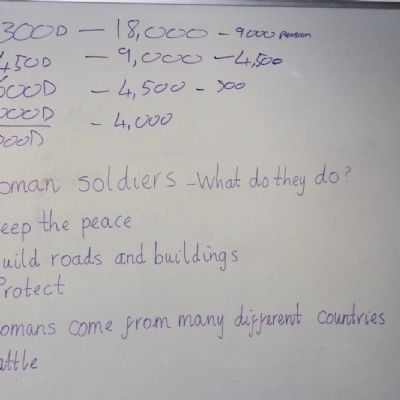 300D – 18,000 – 9000 pension
450D – 9,000 – 4,500
00D – 4,500 – 500
000D – 4,000
000D
oman soldiers – What do they do?
eep the peace
uild roads and buildings
Protect
omans come from many different countries
attle